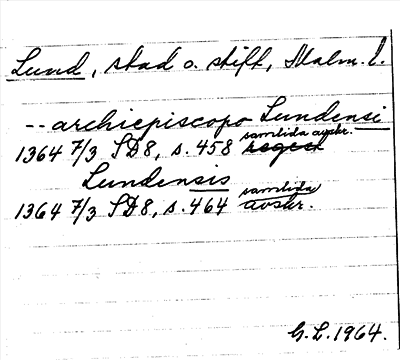 Lund, stad o. stift, Malm. l.
-- archiepiscopo Lundensi
1364 7/3 SD8, s. 458 samtida avskr.
Lundensis
1364 7/3 SD8, s. 464 samtida avskr.
G. L. 1964.